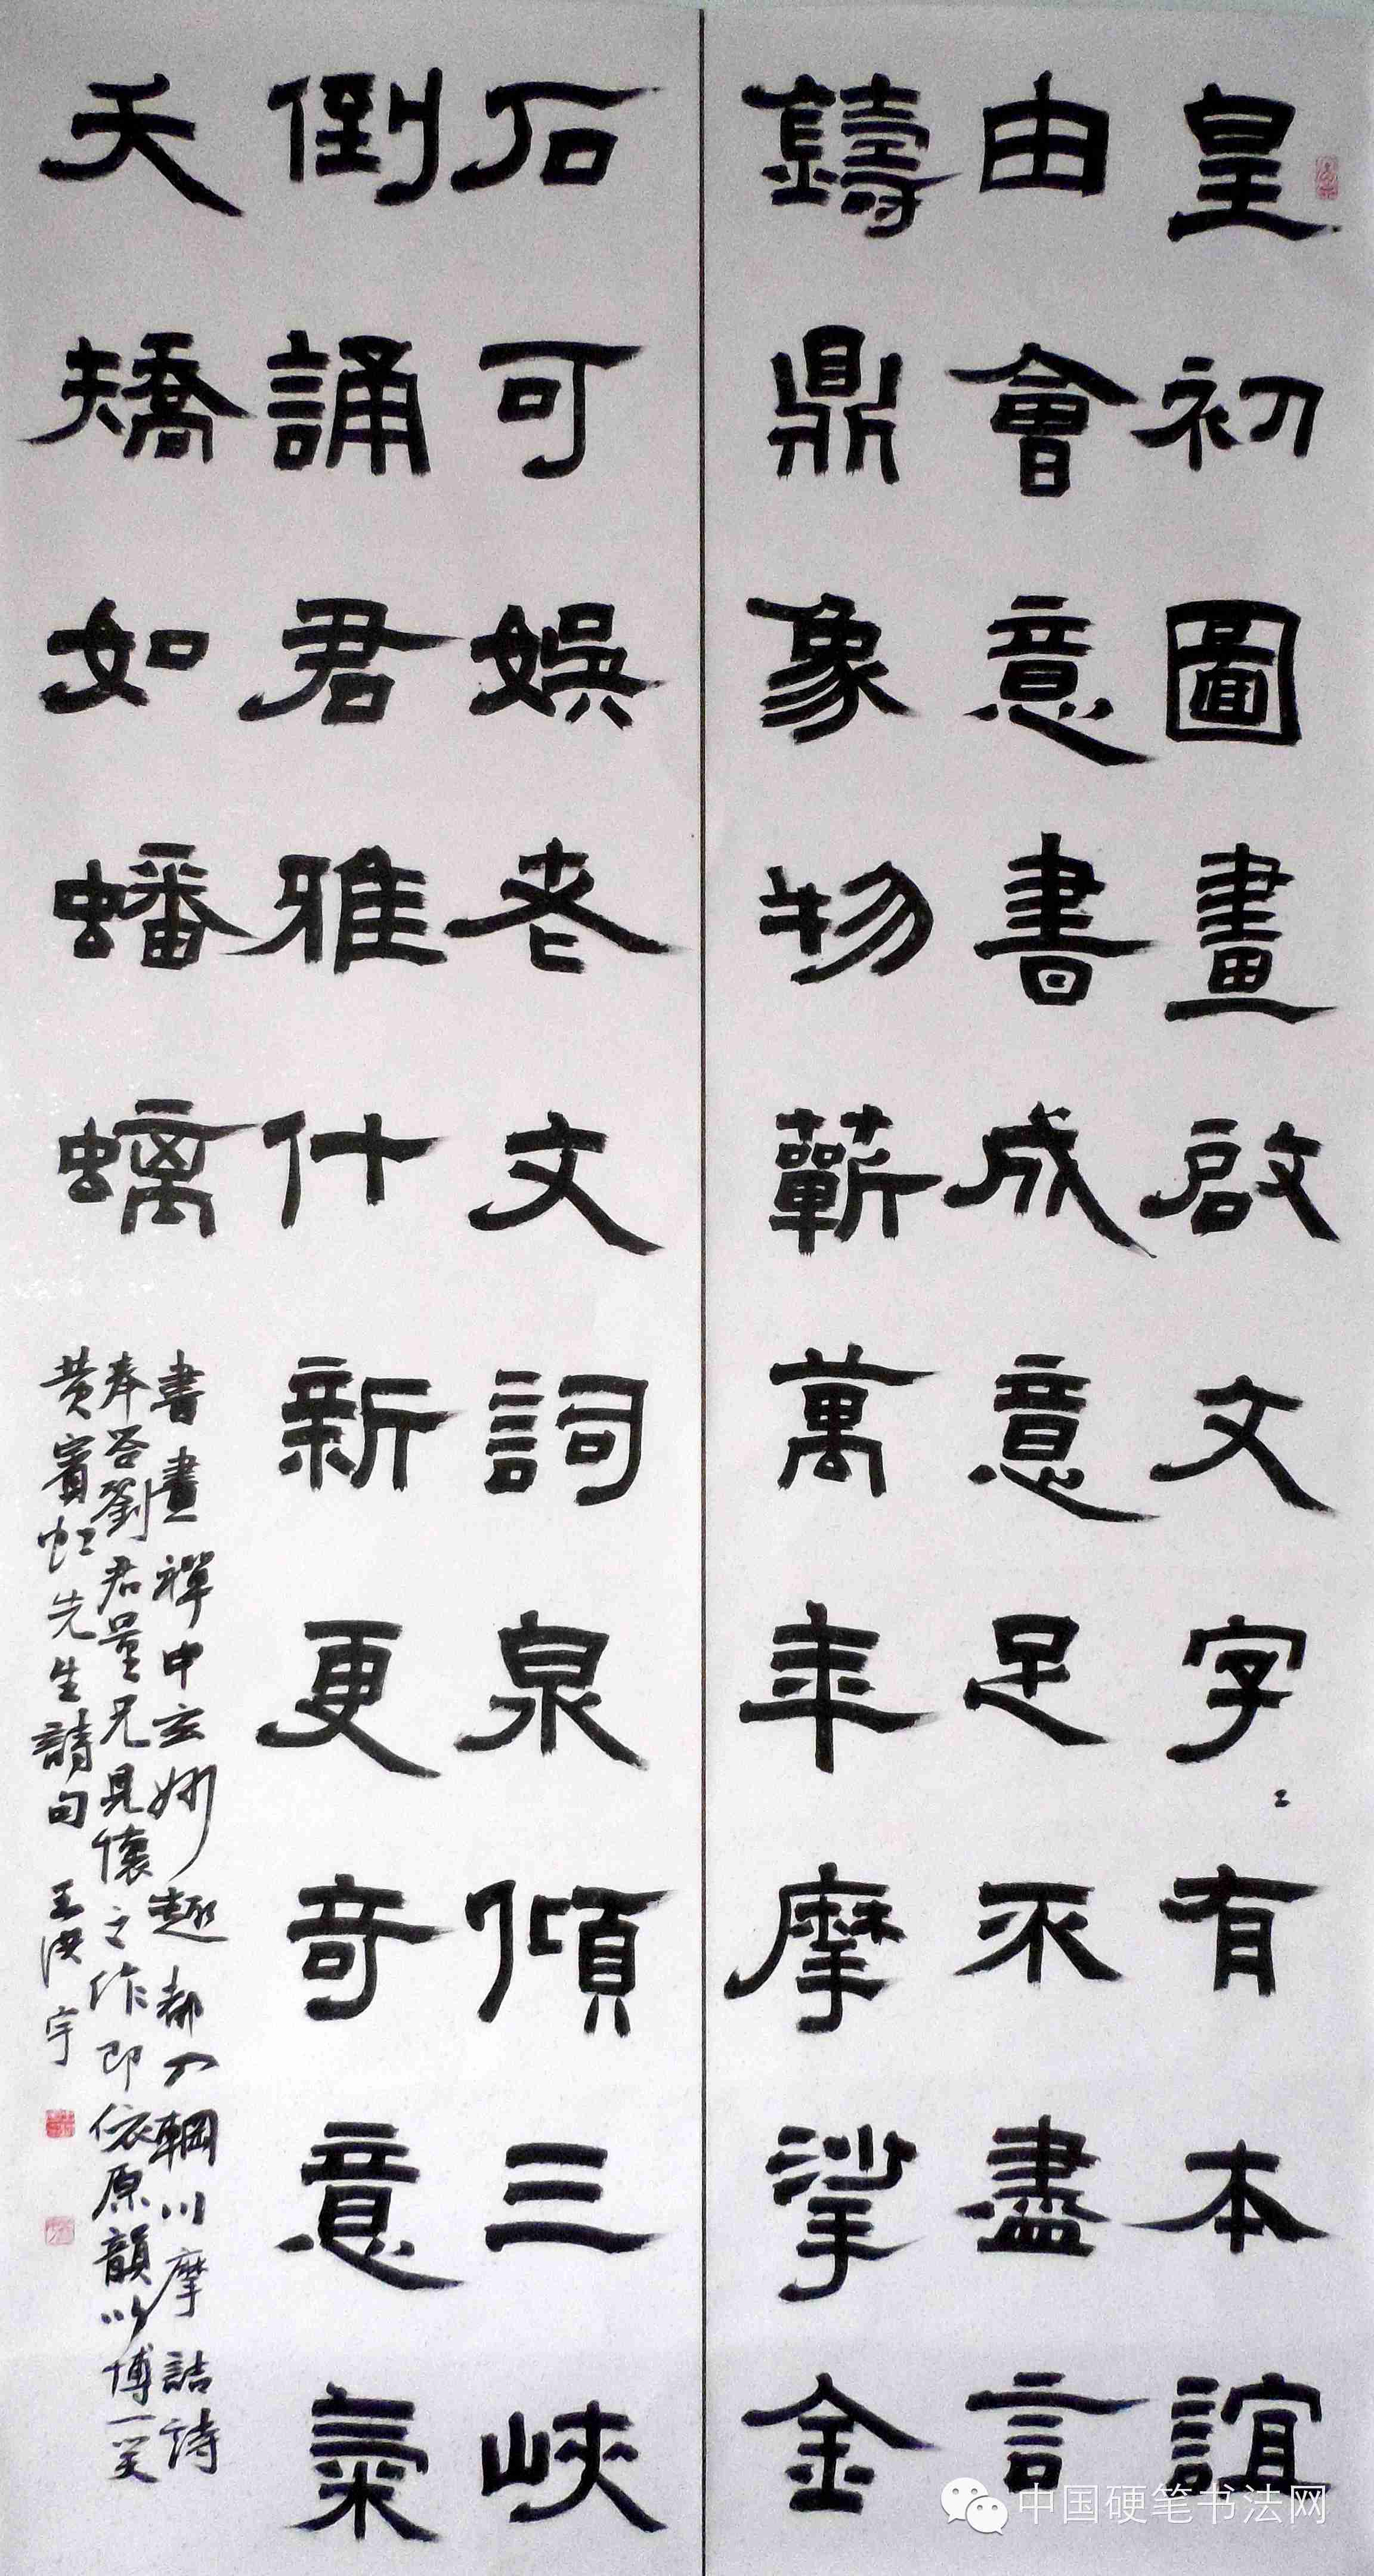 皇初圖畫啟文字〻有本誼
由會意書成意足不盡言
鑄鼎象物蘄萬年摩挲金
石可娛老文詞泉傾三峽
倒誦君雅什新更奇意氣
天矯如蟠螭
書畫禪中玄妙趣都入輞川摩詰詩
奉答劉君量兄見懷之作即依原韻以博一笑
黄賓虹先生詩句 王洪宇
中国硬笔书法网